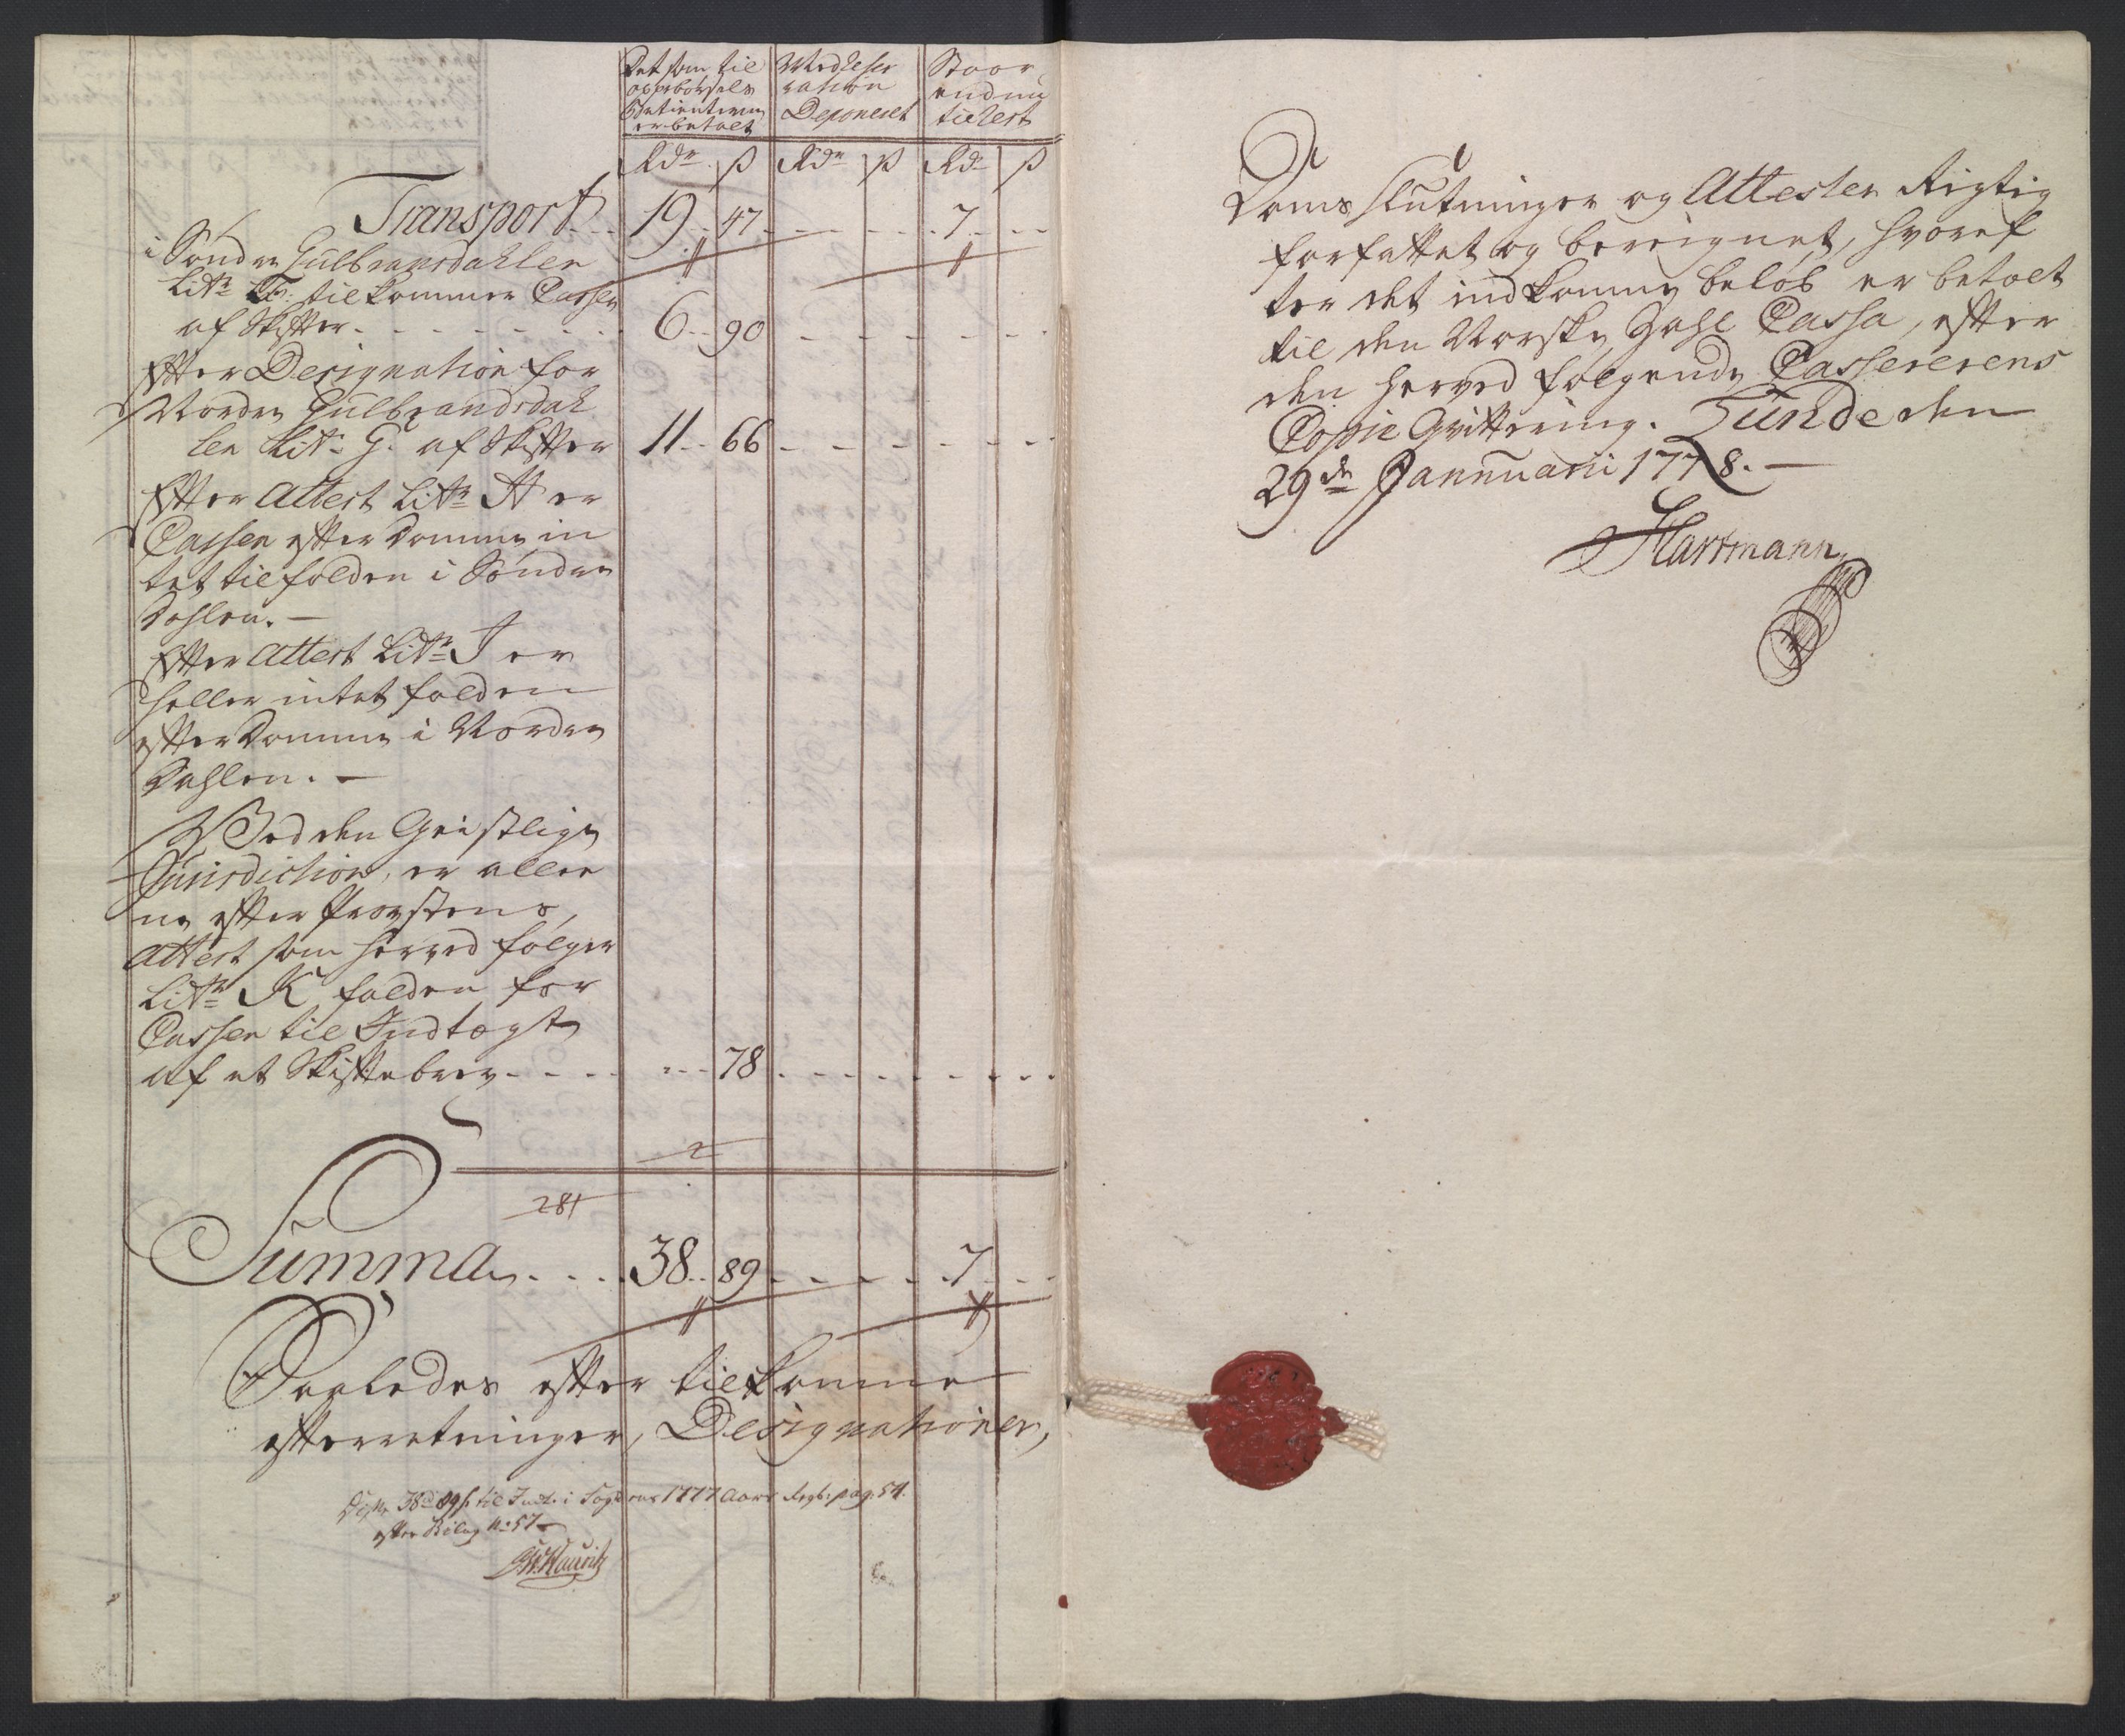 Det som til
oppebörsels
betienteren
er betalt
Med
ration
Deponeret
Staar
endnu
til Rest
Rdr ß Rdr ß Rdr ß
Transport 19 47 7
i Söndre Gulbransdahlen
Litr F: tilkommer Cassen
af Skifter 6 90
Efter Designation for
Nordre Gulbrandsdah
len Litr G. af Skifter 11 66
Efter Attest Litr H er
Cassen efter Domme in
tet tilfalden i Söndre
Dahlen.
Efter Attest Litr I er
heller intet falden
efter Domme i Nordre
Dahlen.
Ved den Geistlige
Jurisdiction, er allee
ne efter Provstens
Attest som herved fölger
Litr K falden for
Cassen til Indtægt
af et Skiftebrev 78
2
281
Summa 38 89 7
Saaledes efter tilkomne
efterretninger, Designationer,
38 89 ß til Indt. i Fogdens 1777 Aars Regb: pag: 54.
efter Bilag No 57
Domsslutninger og Attester Rigtig
forfattet og beregnet, hvoref
ter det indkomne belöb er betalt
til den Norske Cassa, efter
den herved fölgende Cassererens
Copie Qvittering. Tunde den
29de Jannuarii 1778.
Hartmann